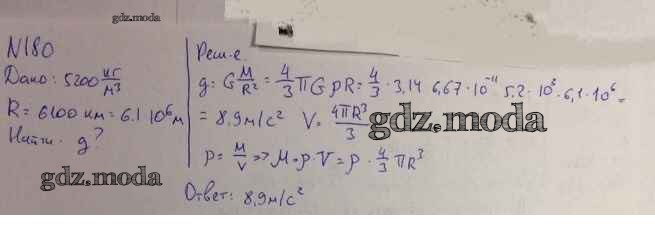 gdz.moda
N180
Дано: 5200 кг/м³
R = 6100 км = 6.1 10⁶ м
Найти. g?
Реш-е.
g = G M/R² = 4/3 πG ρR = 4/3 · 3,14 6,67·10⁻¹¹ 5.2·10³·6,1·10⁶ =
= 8,9 м/с² V = 4πR³/3
gdz.moda
ρ = M/V => M = ρ·V = ρ · 4/3 πR³
gdz.moda
Ответ: 8,9 м/с²